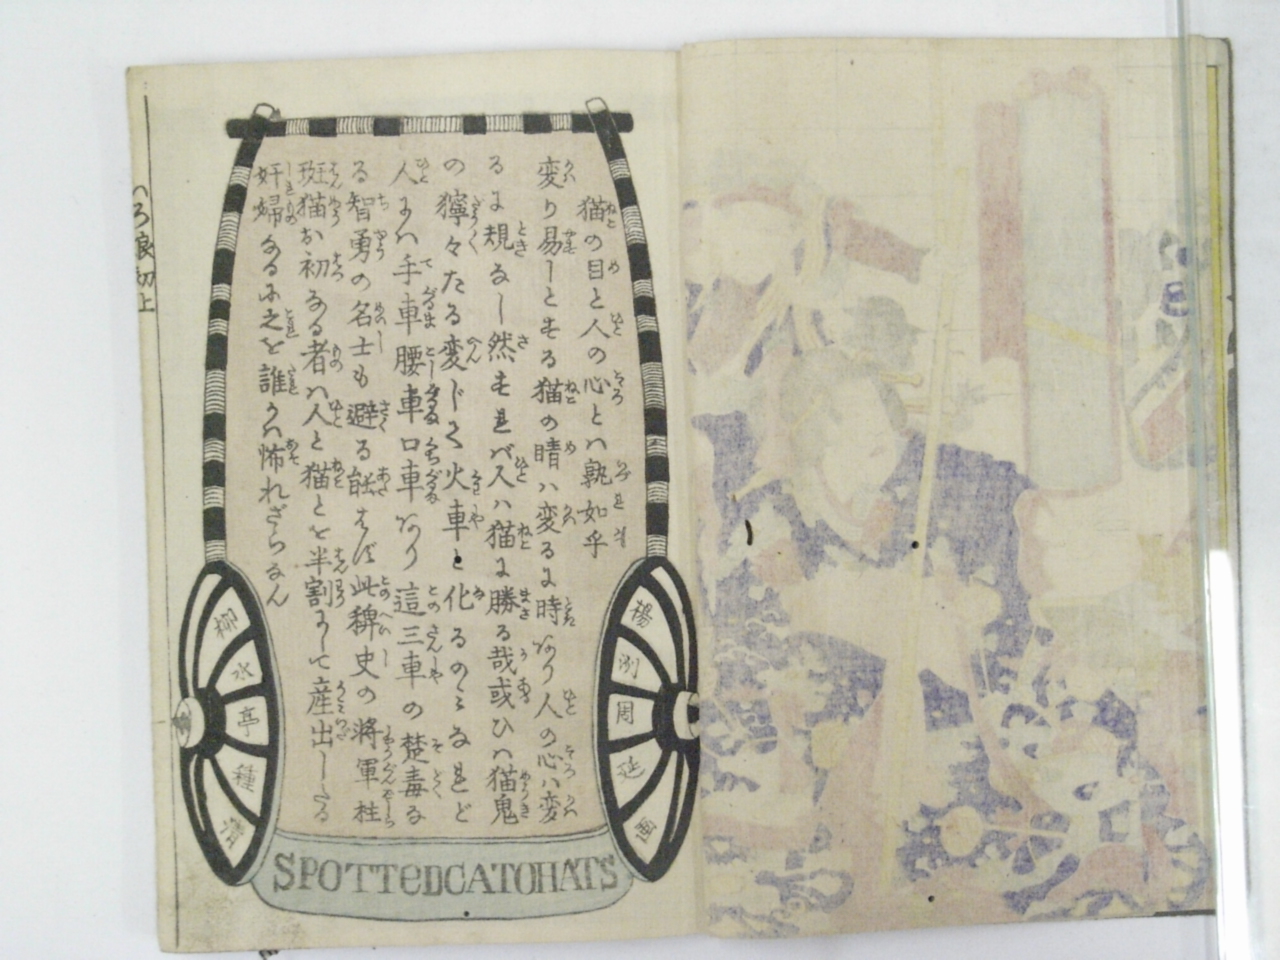 猫の目と人の心とハ孰如乎
変り易しとする猫の睛ハ変るに時あり人の心ハ変
るに規なし然すれバ人ハ猫に勝る哉或ひハ猫鬼
の獰々たる変じて火車と化るのミなれど
人にハ手車腰車口車あり這三車の楚毒な
る智勇の名士も避る能はず此稗史の将軍
斑猫お初なる者ハ人と猫とを半割にして産出したる
奸婦なるに之を誰かハ怖れざらなん
楊洲周延画
柳水亭種清
SPOTTeDCATOHATS
初上